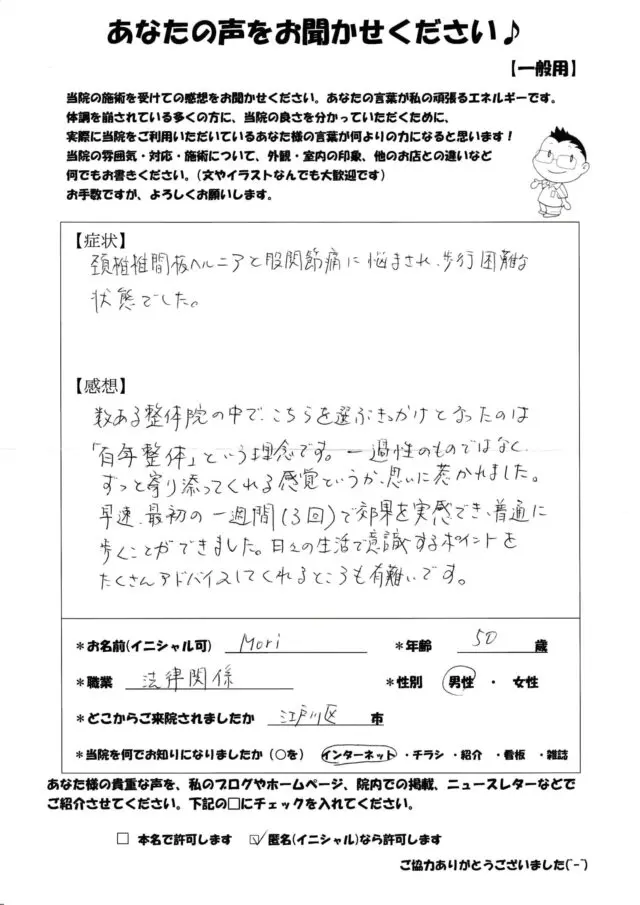 あなたの声をお聞かせください♪
【一般用】
当院の施術を受けての感想をお聞かせください。あなたの言葉が私の頑張るエネルギーです。
体調を崩されている多くの方に、当院の良さを分かっていただくために、
実際に当院をご利用いただいているあなた様の言葉が何よりの力になると思います!
当院の雰囲気・対応・施術について、外観・室内の印象、他のお店との違いなど
何でもお書きください。(文やイラストなんでも大歓迎です)
お手数ですが、よろしくお願いします。
【症状】
頚椎椎間板ヘルニアと股関節痛に悩まされ、歩行困難な
状態でした。
【感想】
数ある整体院の中で、こちらを選ぶきっかけとなったのは
「百年整体」という理念です。一過性のものではなく、
ずっと寄り添ってくれる感覚というか、思いに惹かれました。
早速、最初の一週間(3回)で効果を実感でき、普通に
歩くことができました。日々の生活で意識するポイントを
たくさんアドバイスしてくれるところも有難いです。
*お名前(イニシャル可) Mori *年齢 50 歳
*職業 法律関係 *性別 男性 ・ 女性
*どこからご来院されましたか 江戸川区 市
*当院を何でお知りになりましたか(○を) インターネット ・チラシ ・紹介 ・看板 ・雑誌
あなた様の貴重な声を、私のブログやホームページ、院内での掲載、ニュースレターなどで
ご紹介させてください。下記の□にチェックを入れてください。
□ 本名で許可します ☑ 匿名(イニシャル)なら許可します
ご協力ありがとうございました(^-^)